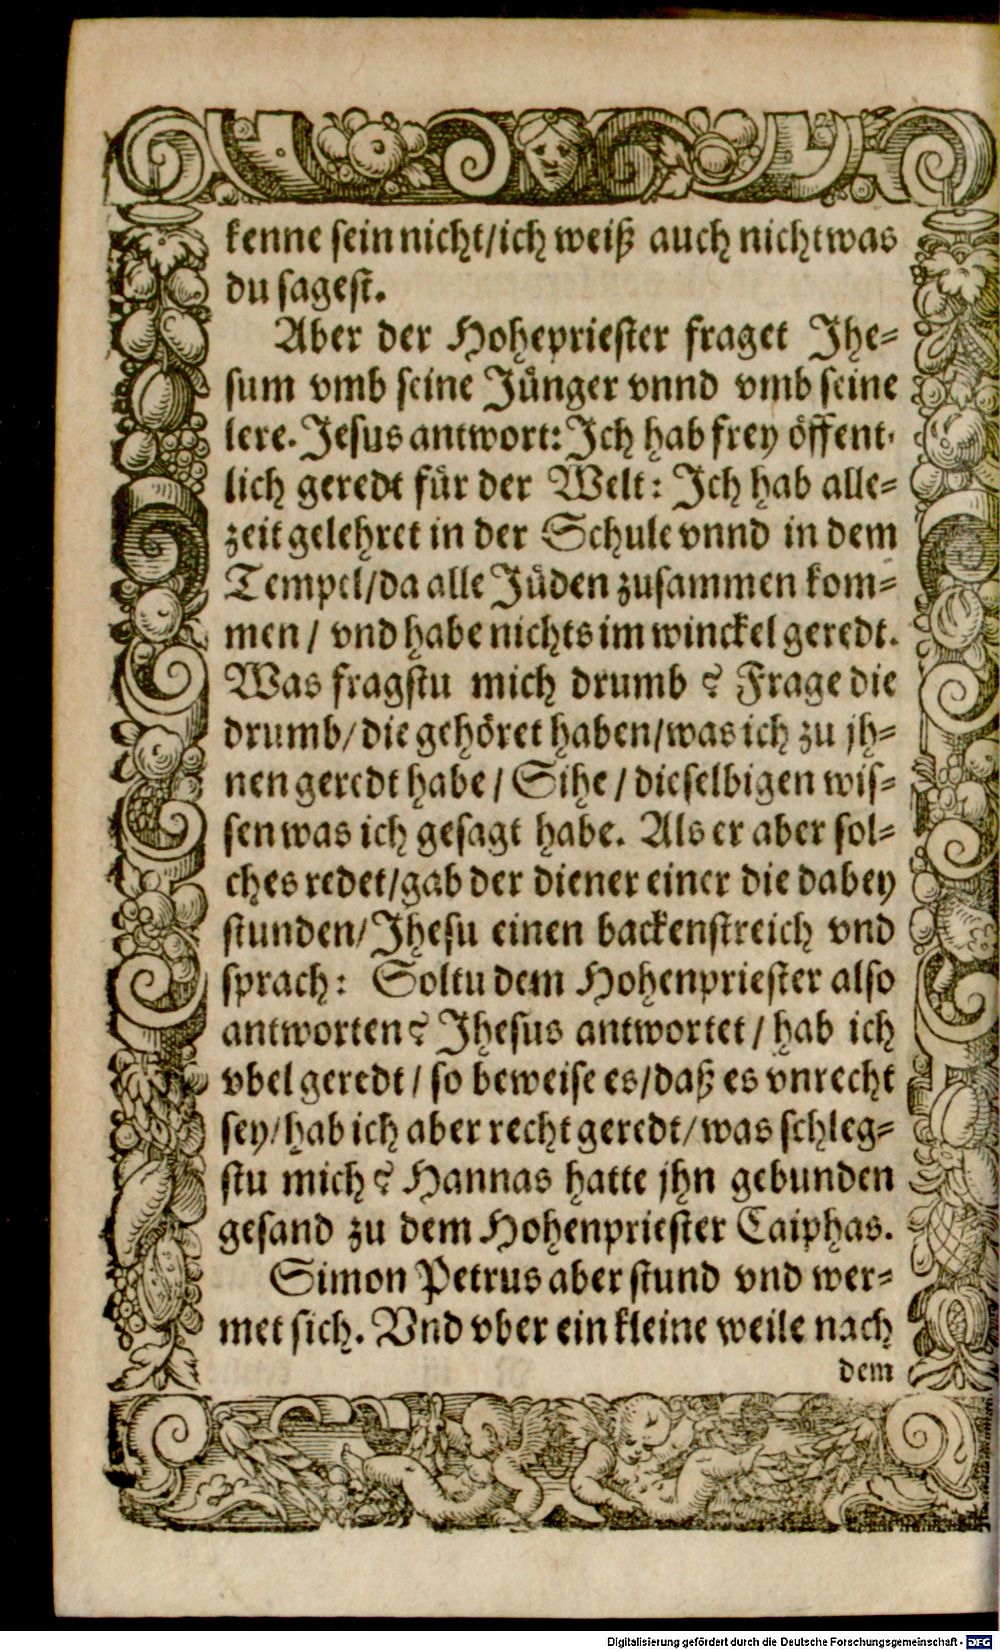 kenne sein nicht/ich weiß auch nicht was
du sagest.
Aber der Hohepriester fraget Jhe-
sum vmb seine Jünger vnnd vmb seine
lere. Jesus antwort: Jch hab frey öffent-
lich geredt für der Welt: Jch hab alle-
zeit gelehret in der Schule vnnd in dem
Tempel/da alle Jüden zusammen kom-
men / vnd habe nichts im winckel geredt.
Was fragstu mich drumb ? Frage die
drumb/die gehöret haben/was ich zu jh-
nen geredt habe / Sihe / dieselbigen wis-
sen was ich gesagt habe. Als er aber sol-
ches redet/gab der diener einer die dabey
stunden/Jhesu einen backenstreich vnd
sprach: Soltu dem Hohenpriester also
antworten? Jhesus antwortet / hab ich
vbel geredt / so beweise es/daß es vnrecht
sey/hab ich aber recht geredt/was schleg-
stu mich? Hannas hatte jhn gebunden
gesand zu dem Hohenpriester Caiphas.
Simon Petrus aber stund vnd wer-
met sich. Vnd vber ein kleine weile nach
dem
Digitalisierung gefördert durch die Deutsche Forschungsgemeinschaft - DFG